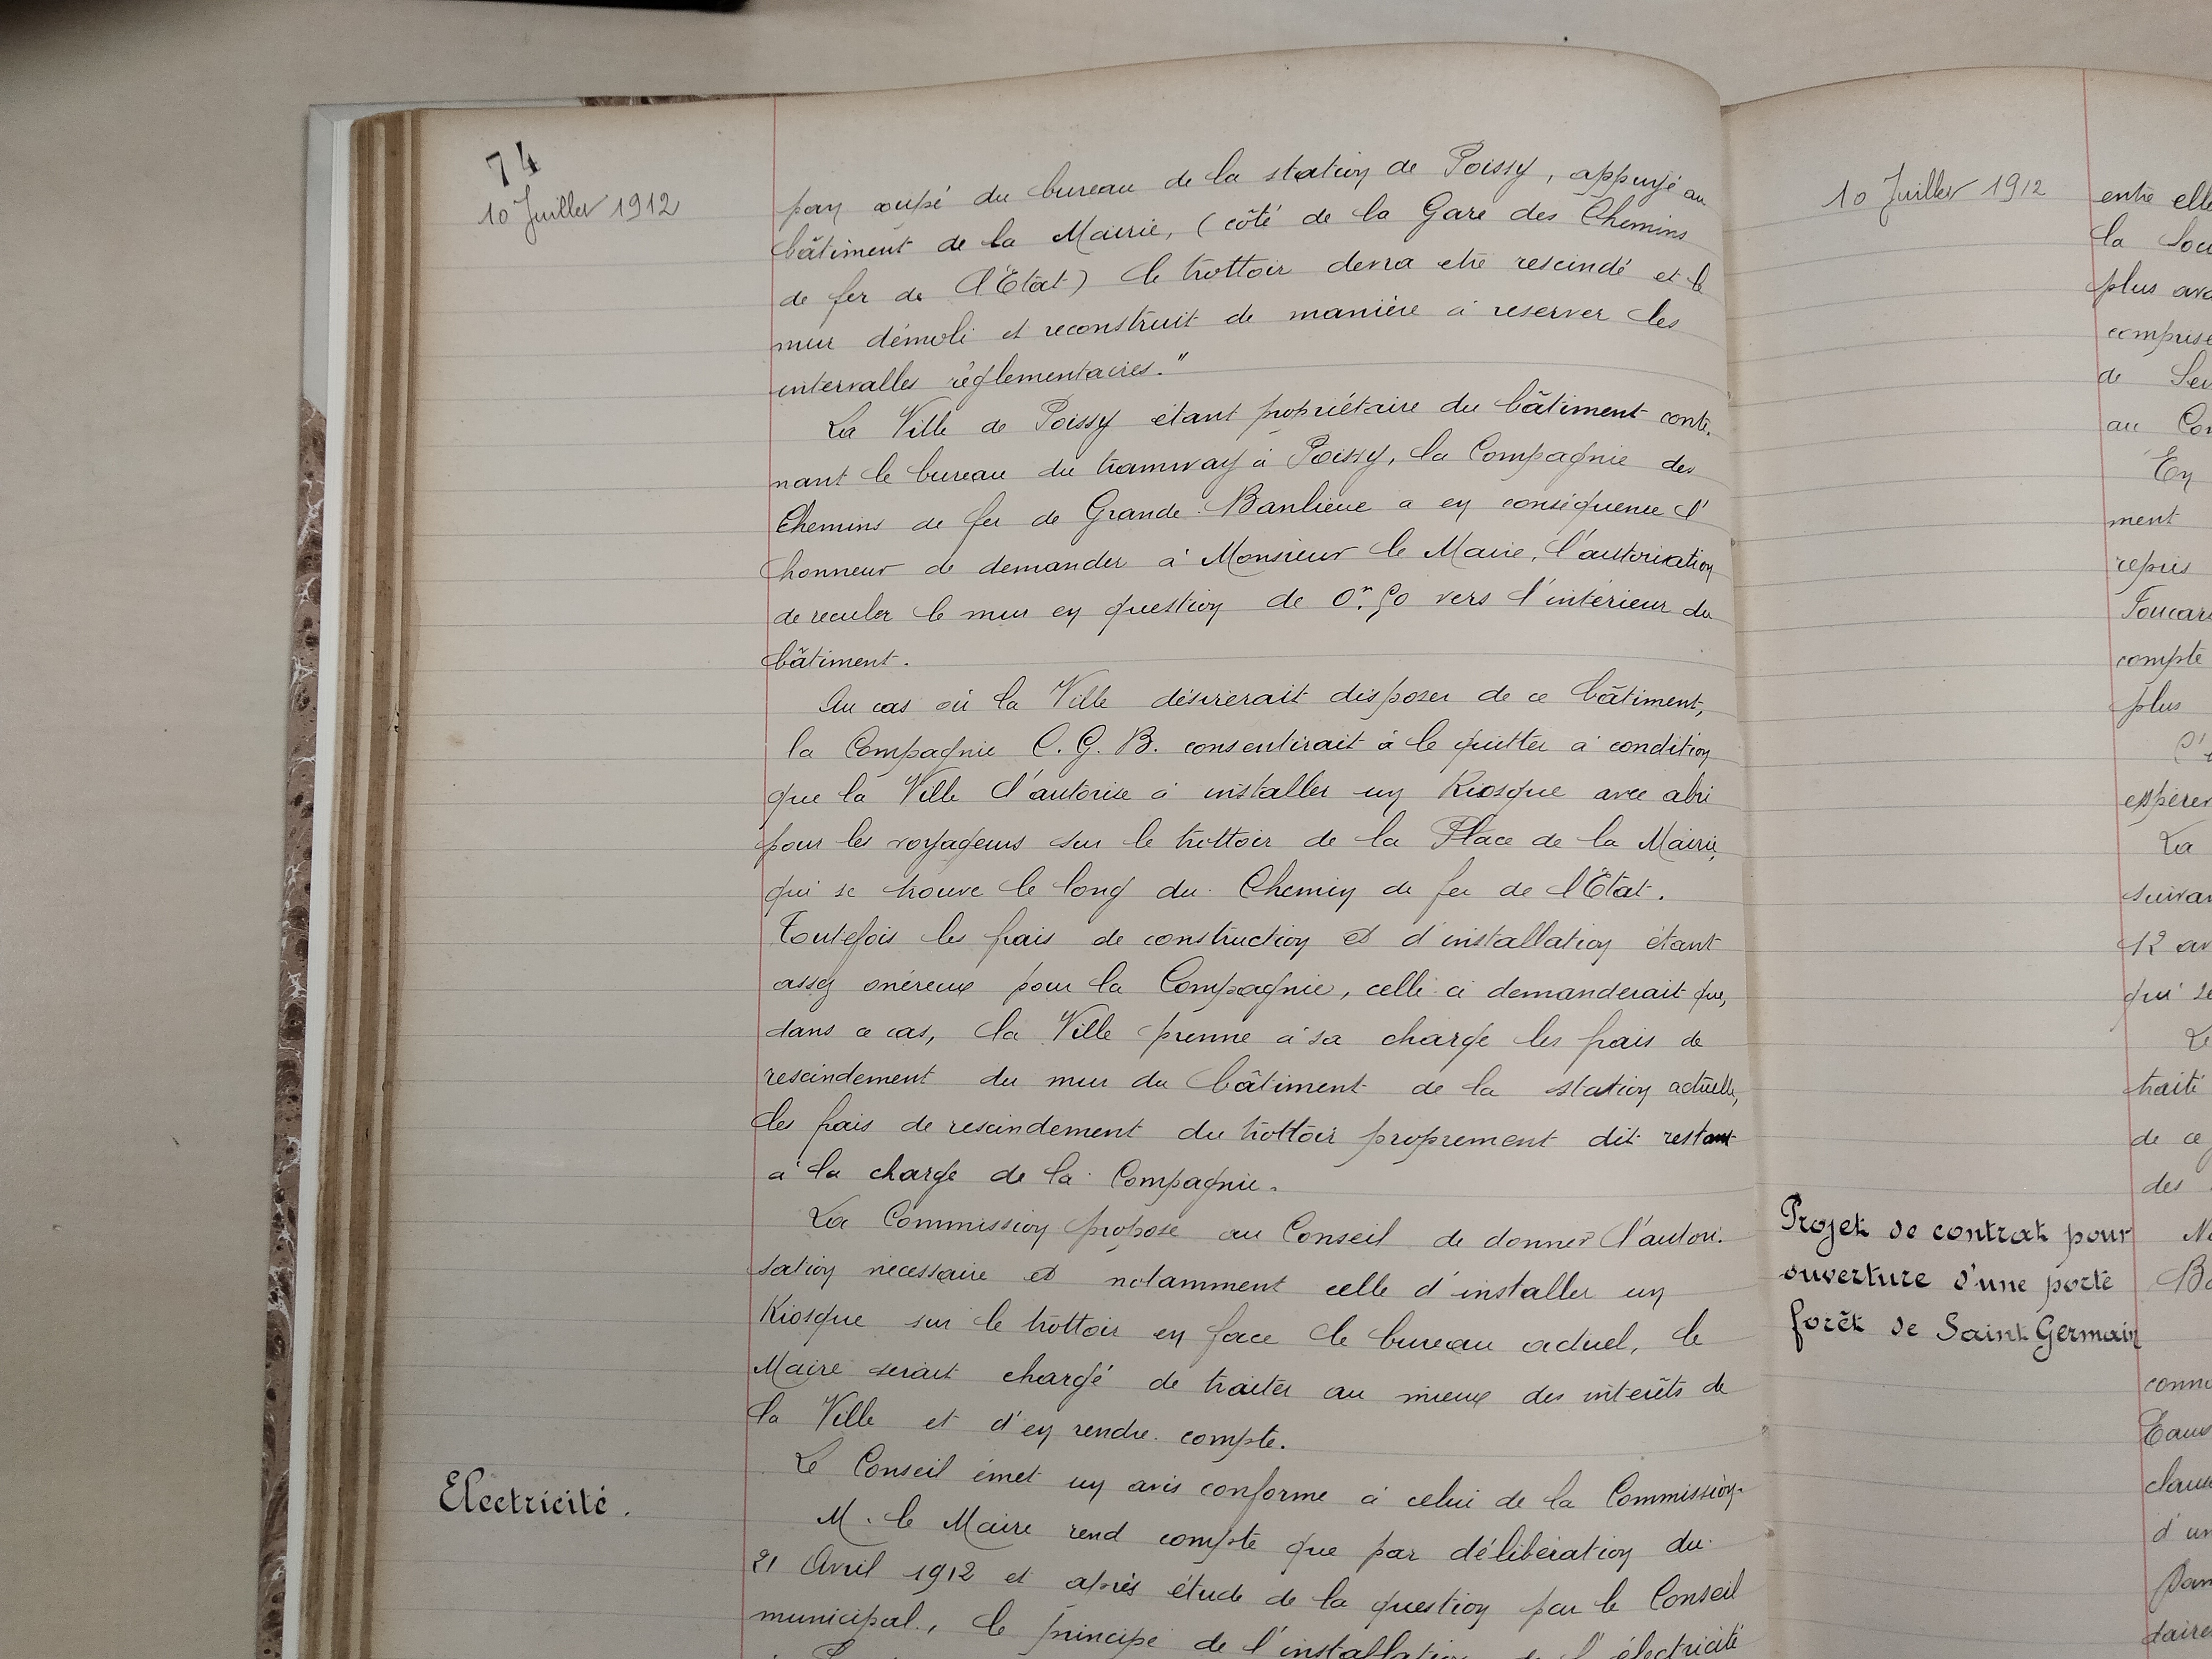 74
10 Juillet 1912
pan coupé du bureau de la station de Poissy, appuyé au
bâtiment de la Mairie, (côté de la Gare des Chemins
de fer de l'Etat) le trottoir devra etre rescindé et le
mur démoli et reconstruit de manière à reserver les
intervalles réglementaires."
La Ville de Poissy étant propriétaire du bâtiment conte-
nant le bureau du tramway à Poissy, la Compagnie des
Chemins de fer de Grande Banlieue a en conséquence l'
honneur de demander à Monsieur le Maire, l'autorisation
de reculer le mur en question de 0m.50 vers l'intérieur du
bâtiment.
Au cas où la Ville désirerait disposer de ce bâtiment,
la Compagnie C. G. B. consentirait à le quitter à condition
que la Ville l'autorise à installer un Kiosque avec abri
pour les voyageurs sur le trottoir de la Place de la Mairie,
qui se trouve le long du Chemin de fer de l'Etat.
Toutefois les frais de construction et d'installation étant
assez onéreux pour la Compagnie, celle ci demanderait que,
dans ce cas, la Ville prenne à sa charge les frais de
rescindement du mur du bâtiment de la station actuelle,
les frais de rescindement du trottoir proprement dit restant
à la charge de la Compagnie.
La Commission propose au Conseil de donner l'autori-
sation nécessaire et notamment celle d'installer un
Kiosque sur le trottoir en face le bureau actuel, le
Maire serait chargé de traiter au mieux des intérêts de
la Ville et d'en rendre compte.
Le Conseil émet un avis conforme à celui de la Commission.
Electricité.
M. le Maire rend compte que par délibération du
21 Avril 1912 et après étude de la question par le Conseil
municipal, le principe de l'installation de l'électricité
10 Juillet 1912
entre elle
la
plus
comprise
de
au
En
ment
repris
compte
plus
La
12
qui
Le
traité
de ce
des
Projet de contrat pour
ouverture d'une porte
forêt de Saint Germain
Eaux
d'un